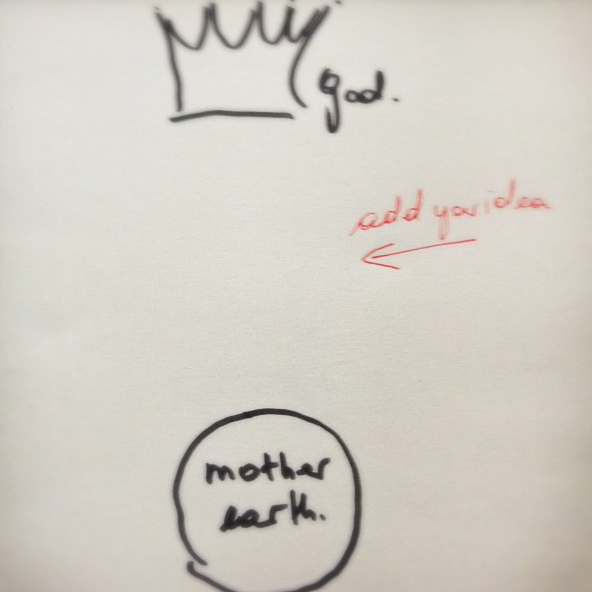 god.
add your idea
mother
earth.